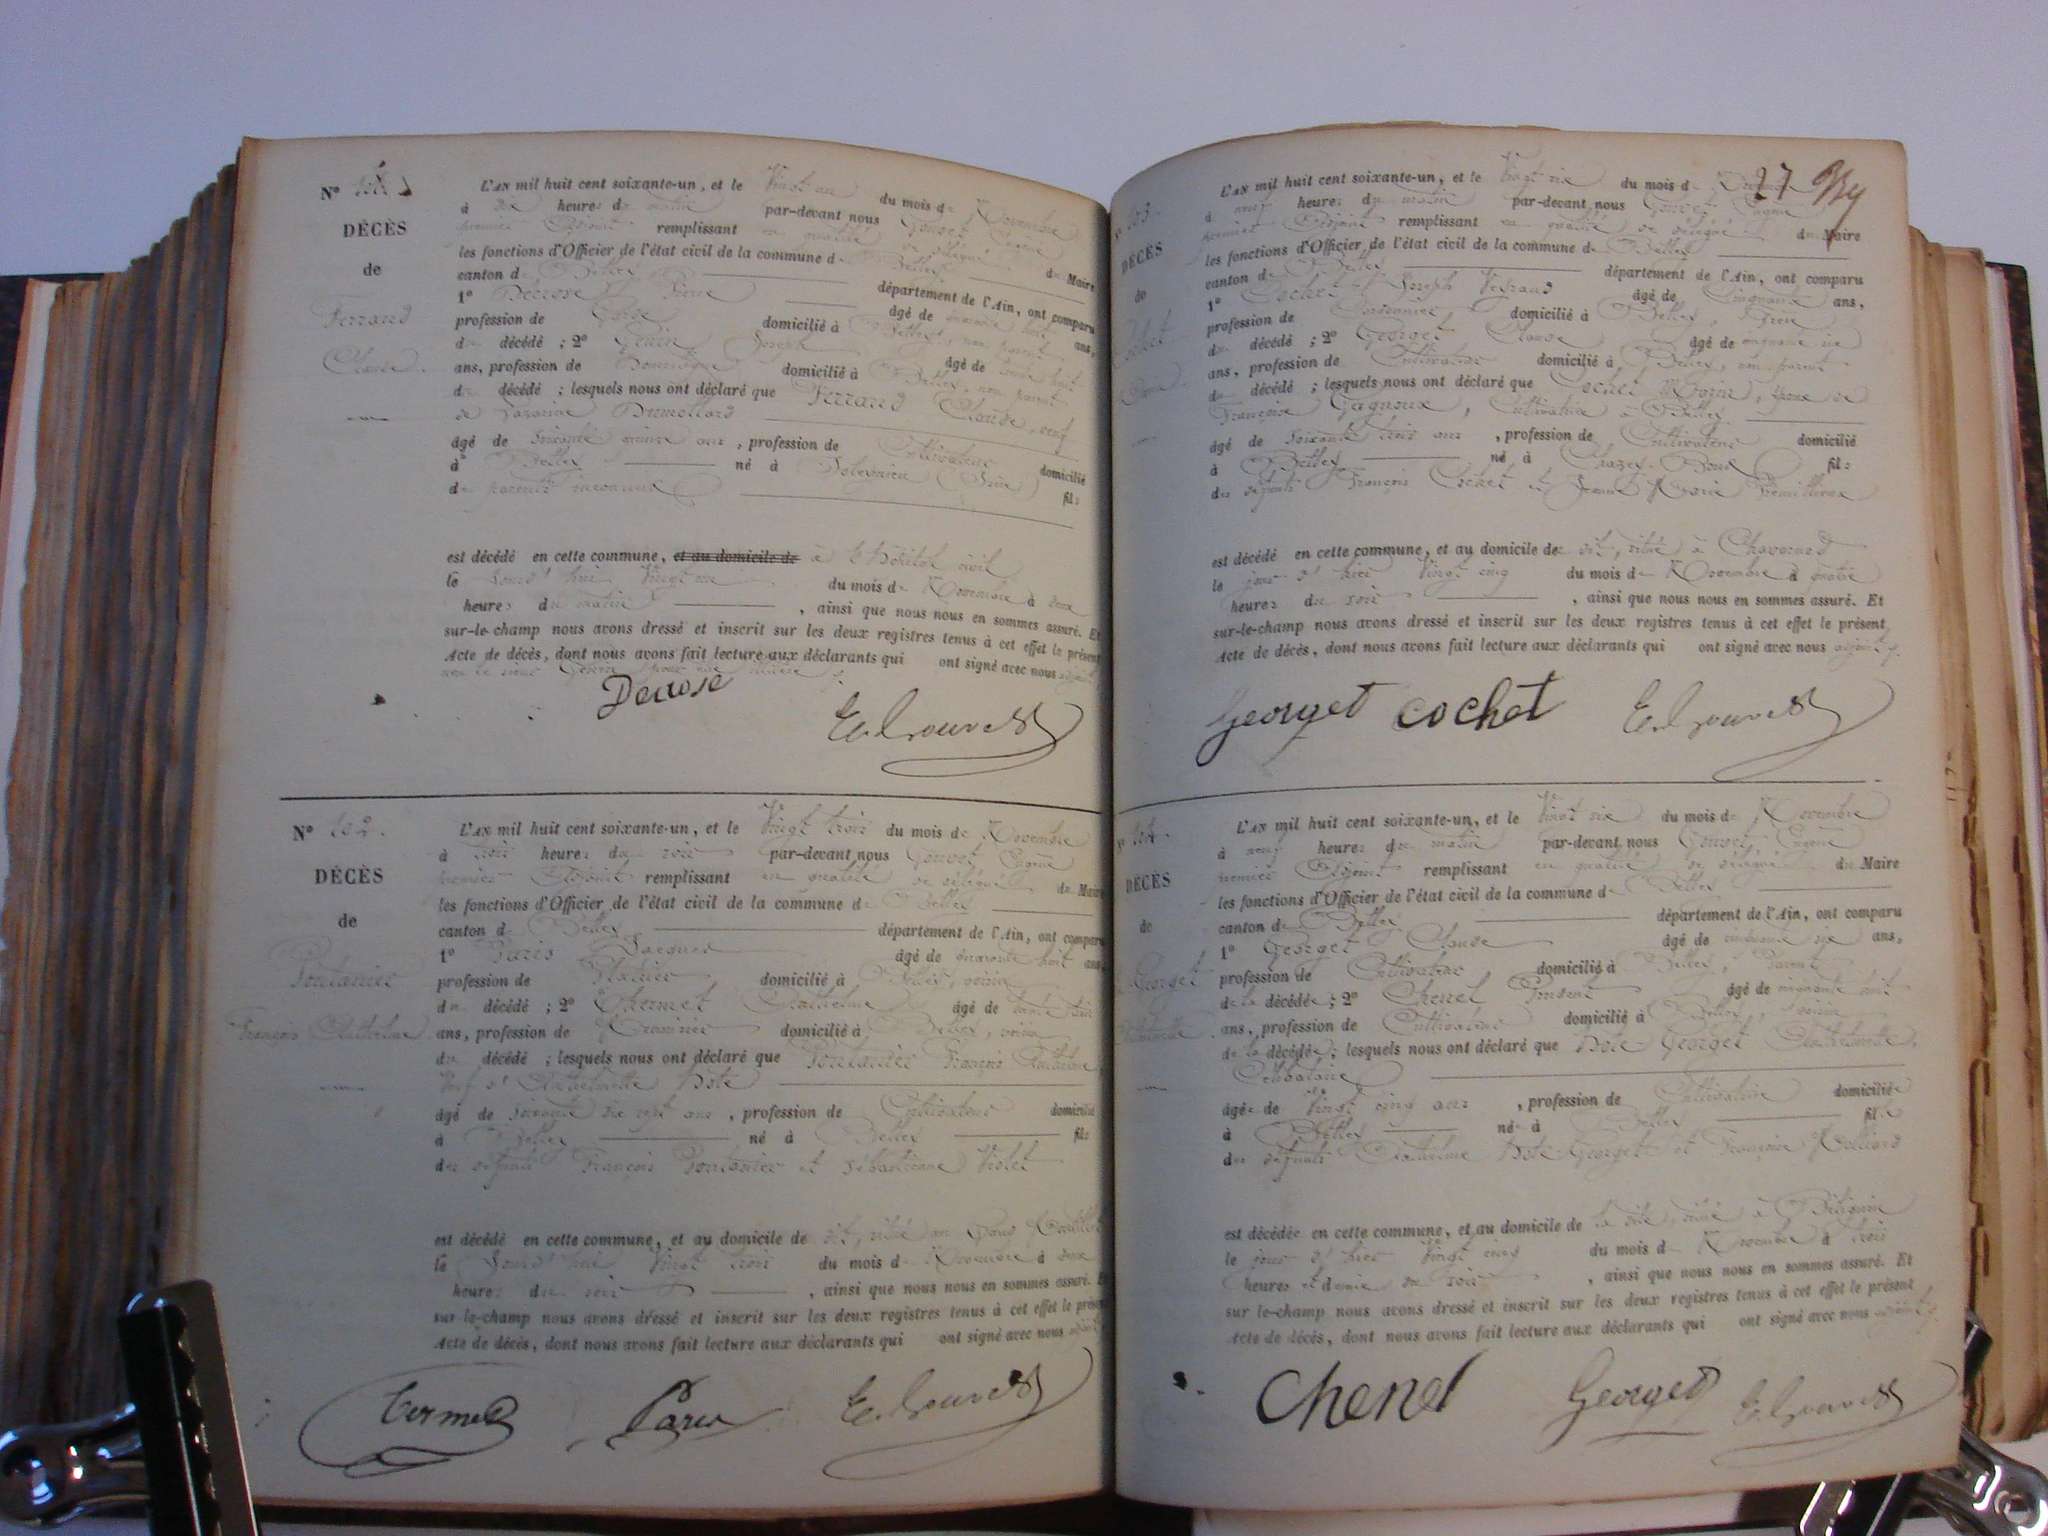 N° 101
DÉCÈS
de
Ferrand
Claude.
L'AN mil huit cent soixante-un, et le Vingt un du mois de Novembre
à dix heures du matin par-devant nous Gouvet Eugène
premier Adjoint remplissant en qualité de délégué du Maire
les fonctions d'Officier de l'état civil de la commune de Belley
canton de Belley département de l'Ain, ont comparu
1° Décrose Pierre âgé de quarante huit ans,
profession de domicilié à Belley, non parent
du décédé ; 2° Genin Joseph âgé de trente huit
ans, profession de Domestique domicilié à Belley, non parent
du décédé ; lesquels nous ont déclaré que Ferrand Claude, veuf
de Dumollard
âgé de soixante quinze ans, profession de Cultivateur domicilié
à Belley né à (Isère) fils
de parents inconnus
est décédé en cette commune, et au domicile de à l'hôpital civil
le jourd'hui Vingt un du mois de Novembre à deux
heures du matin, ainsi que nous nous en sommes assuré. Et
sur-le-champ nous avons dressé et inscrit sur les deux registres tenus à cet effet le présent
Acte de décès, dont nous avons fait lecture aux déclarants qui ont signé avec nous adjoint
non le sieur Genin
Decrose E. Gouvet
N° 102.
DÉCÈS
de
Pontanier
François Anthelme
L'AN mil huit cent soixante-un, et le Vingt trois du mois de Novembre
à trois heures du soir par-devant nous Gouvet, Eugène
premier Adjoint remplissant en qualité de délégué du Maire
les fonctions d'Officier de l'état civil de la commune de Belley
canton de Belley département de l'Ain, ont comparu
1° Paris Jacques âgé de quarante huit ans
profession de Platrier domicilié à Belley, voisin
du décédé ; 2° Thermet Anthelme âgé de trente
ans, profession de Menuisier domicilié à Belley, voisin
du décédé ; lesquels nous ont déclaré que Pontanier François Anthelme
veuf d'Anthelmette Hote
âgé de soixante dix sept ans, profession de Cultivateur domicilié
à Belley né à Belley fils
des défunts François Pontanier et Sébastienne Violet
est décédé en cette commune, et au domicile de dit, situé au
le jourd'hui Vingt trois du mois de Novembre à deux
heures du soir, ainsi que nous nous en sommes assuré. Et
sur-le-champ nous avons dressé et inscrit sur les deux registres tenus à cet effet le présent
Acte de décès, dont nous avons fait lecture aux déclarants qui ont signé avec nous adjoint
Termet Paris E. Gouvet
27
103.
DÉCÈS
de
Cochet
L'AN mil huit cent soixante-un, et le Vingt six du mois de Novembre
à neuf heures du matin par-devant nous Gouvet Eugène
premier Adjoint remplissant en qualité de délégué du Maire
les fonctions d'Officier de l'état civil de la commune de Belley
canton de Belley département de l'Ain, ont comparu
1° Cochet Joseph âgé de cinquante ans,
profession de Cordonnier domicilié à Belley, frère
du décédé ; 2° Georget Claude âgé de cinquante six
ans, profession de Cultivateur domicilié à Belley, non parent
du décédé ; lesquels nous ont déclaré que Cochet époux de
Françoise Gagnoux, Cultivatrice à Belley
âgé de soixante trois ans, profession de Cultivateur domicilié
à Belley né à Chazey-Bons fils
des défunts François Cochet et Jeanne Marie
est décédé en cette commune, et au domicile de dit, situé à Chavornod
le jour d'hier Vingt cinq du mois de Novembre à quatre
heures du soir, ainsi que nous nous en sommes assuré. Et
sur-le-champ nous avons dressé et inscrit sur les deux registres tenus à cet effet le présent
Acte de décès, dont nous avons fait lecture aux déclarants qui ont signé avec nous adjoint
Georget cochet E. Gouvet
104.
DÉCÈS
de
Georget
L'AN mil huit cent soixante-un, et le Vingt six du mois de Novembre
à neuf heures du matin par-devant nous Gouvet, Eugène
premier Adjoint remplissant en qualité de délégué du Maire
les fonctions d'Officier de l'état civil de la commune de Belley
canton de Belley département de l'Ain, ont comparu
1° Georget Claude âgé de cinquante six ans,
profession de Cultivateur domicilié à Belley, parent
de la décédée ; 2° Chenel âgé de cinquante huit
ans, profession de Cultivateur domicilié à Belley, voisin
de la décédée ; lesquels nous ont déclaré que Hote Georget Anthelmette,
Célibataire
âgée de Vingt cinq ans, profession de Cultivatrice domiciliée
à Belley née à Belley fille
des défunts Anthelme Hote Georget et Françoise Milliard
est décédée en cette commune, et au domicile de la dite, situé à
le jour d'hier Vingt cinq du mois de Novembre à trois
heures et demie du soir, ainsi que nous nous en sommes assuré. Et
sur-le-champ nous avons dressé et inscrit sur les deux registres tenus à cet effet le présent
Acte de décès, dont nous avons fait lecture aux déclarants qui ont signé avec nous adjoint
Chenel Georget E. Gouvet